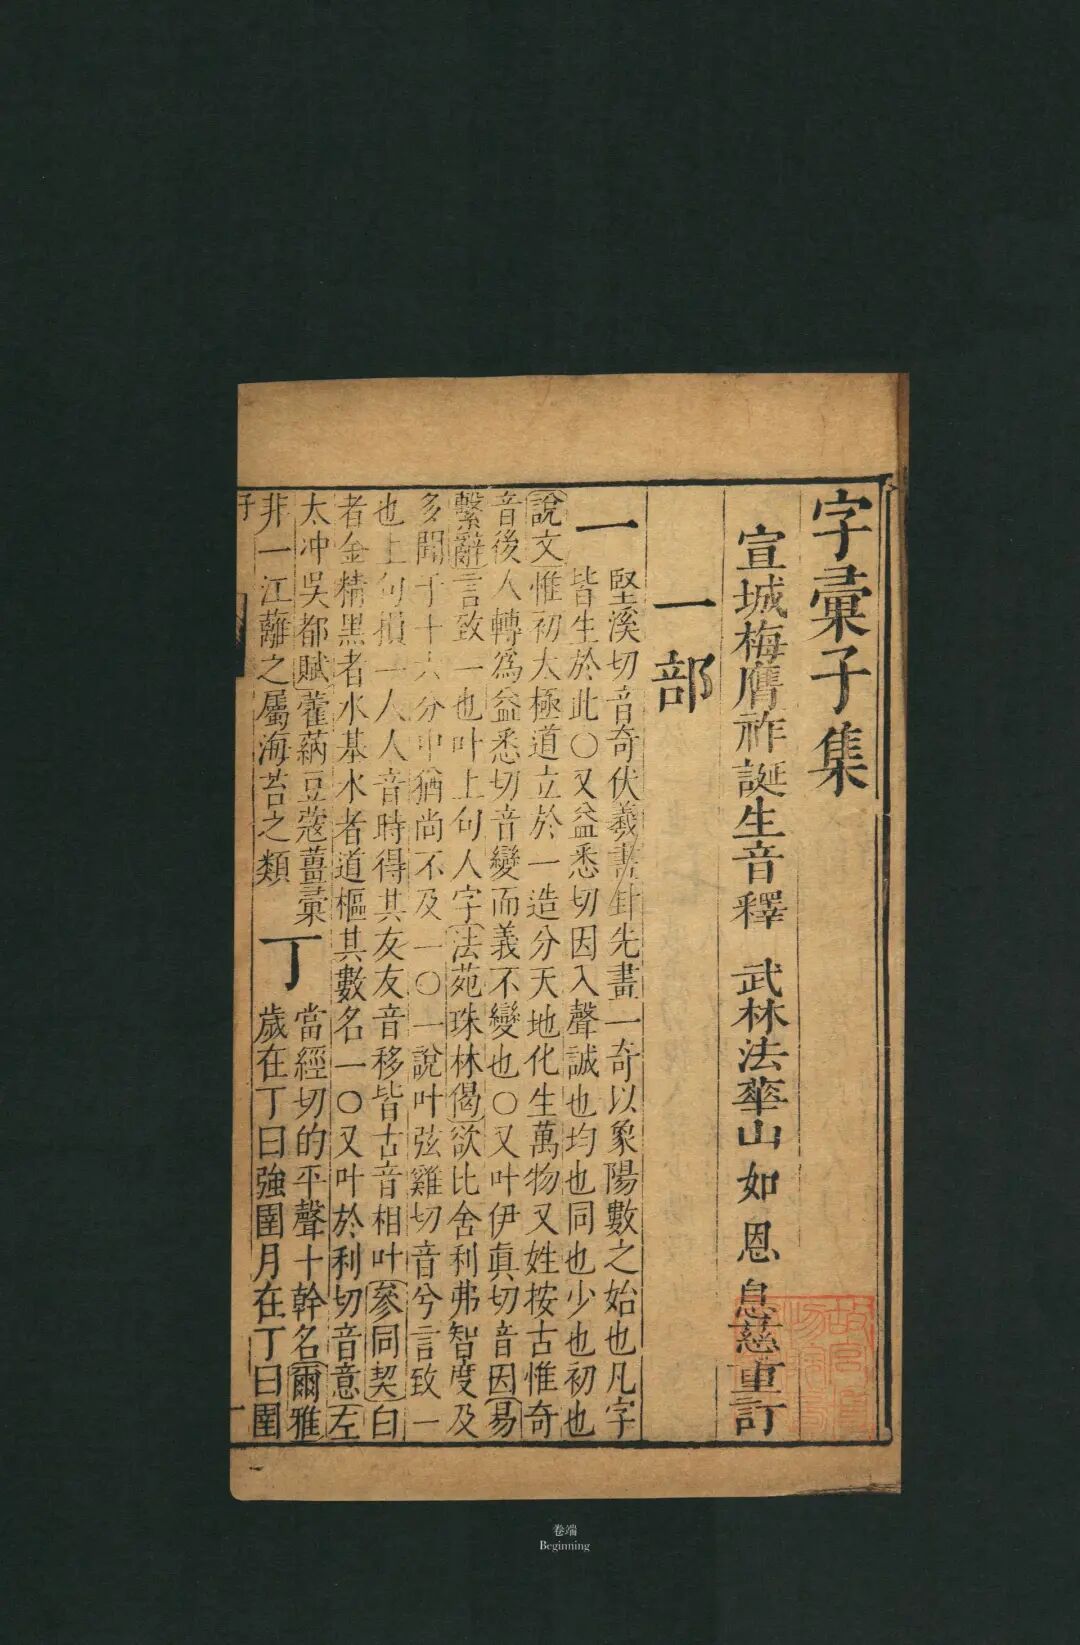 字彙子集
宣城梅膺祚誕生音釋 武林法華山如恩息慈重訂
一部
一
堅溪切音奇伏羲畫卦先畫一奇以象陽數之始也凡字
皆生於此〇又益悉切因入聲誠也均也同也少也初也
說文惟初大極道立於一造分天地化生萬物又姓按古惟奇
音後人轉為益悉切音變而義不變也〇又叶伊真切音因易
繫辭言致一也叶上句人字法苑珠林偈欲比舍利弗智度及
多聞于十六分中猶尚不及一〇一說叶弦雞切音兮言致一
也上句損一人人音時得其友友音移皆古音相叶參同契白
者金精黑者水基水者道樞其數名一〇又叶於利切音意左
太冲吳都賦藿蒳豆蔻薑彙
非一江蘺之屬海苔之類
丁
當經切的平聲十幹名爾雅
歲在丁曰強圉月在丁曰圉
子
一
卷端
Beginning